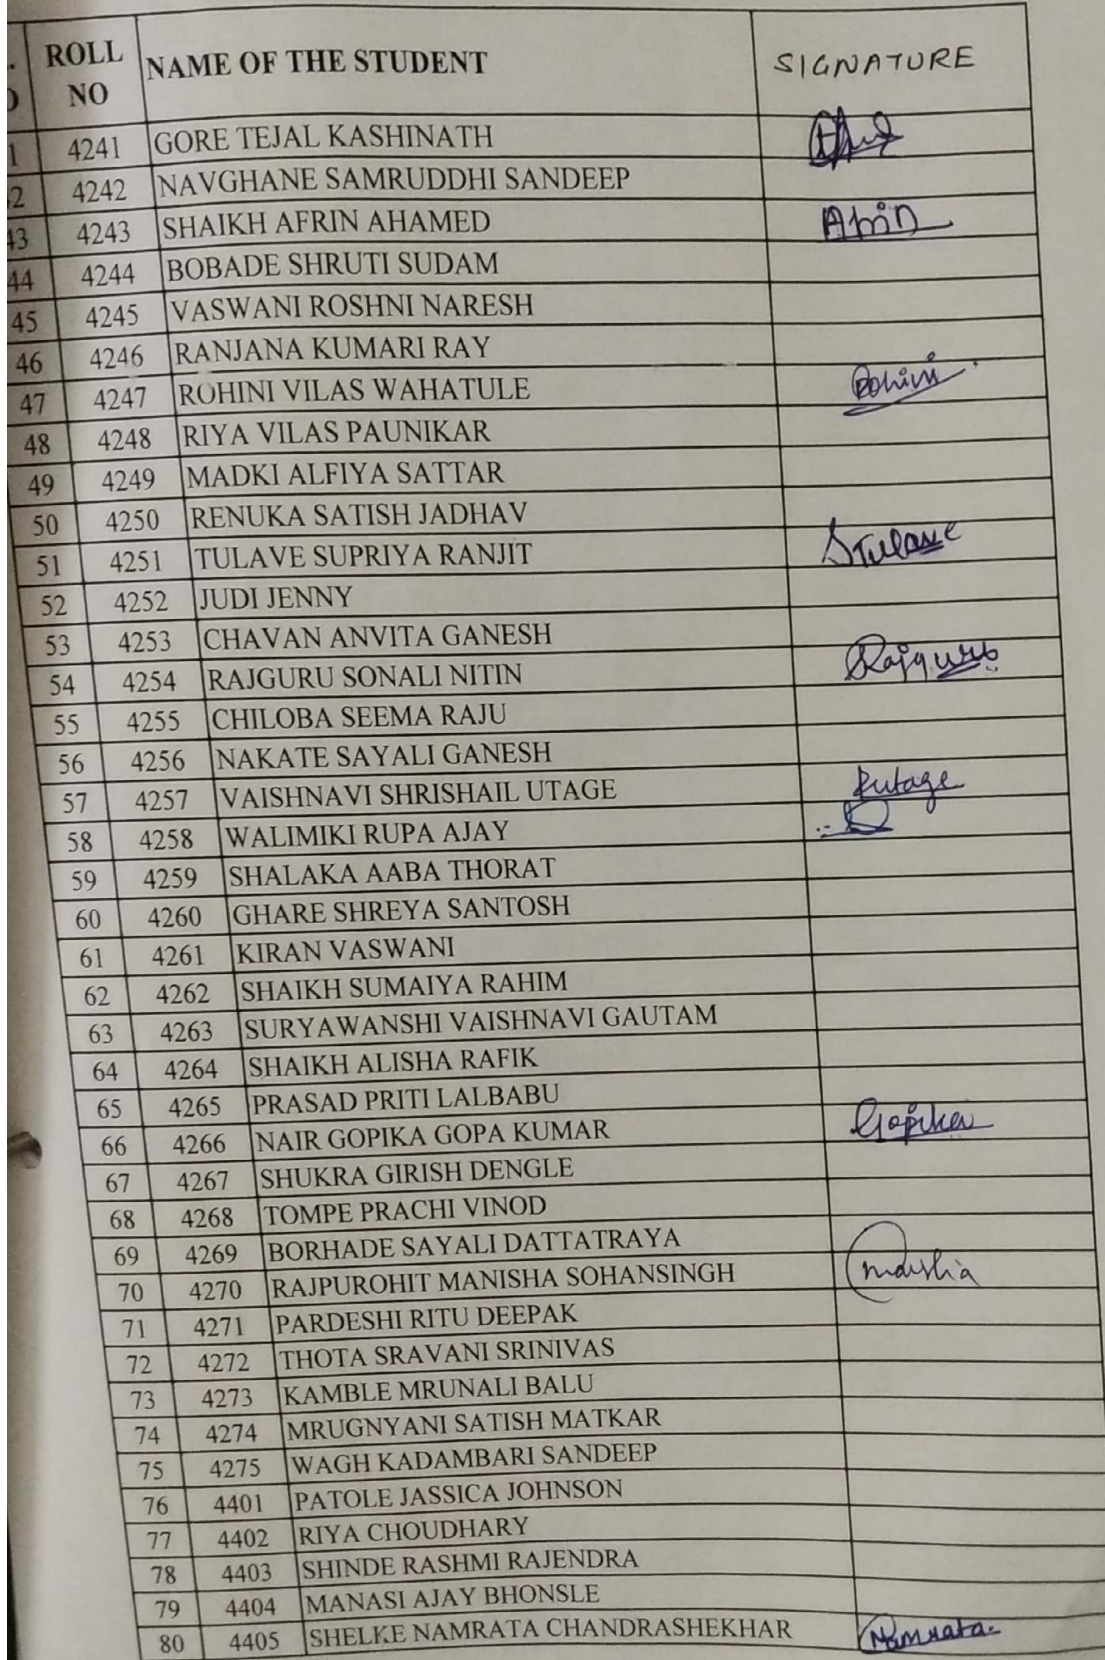 ROLL NO NAME OF THE STUDENT SIGNATURE
1 4241 GORE TEJAL KASHINATH
2 4242 NAVGHANE SAMRUDDHI SANDEEP
43 4243 SHAIKH AFRIN AHAMED Afrin
44 4244 BOBADE SHRUTI SUDAM
45 4245 VASWANI ROSHNI NARESH
46 4246 RANJANA KUMARI RAY
47 4247 ROHINI VILAS WAHATULE Rohini
48 4248 RIYA VILAS PAUNIKAR
49 4249 MADKI ALFIYA SATTAR
50 4250 RENUKA SATISH JADHAV
51 4251 TULAVE SUPRIYA RANJIT STulave
52 4252 JUDI JENNY
53 4253 CHAVAN ANVITA GANESH
54 4254 RAJGURU SONALI NITIN Rajguru
55 4255 CHILOBA SEEMA RAJU
56 4256 NAKATE SAYALI GANESH
57 4257 VAISHNAVI SHRISHAIL UTAGE
58 4258 WALIMIKI RUPA AJAY
59 4259 SHALAKA AABA THORAT
60 4260 GHARE SHREYA SANTOSH
61 4261 KIRAN VASWANI
62 4262 SHAIKH SUMAIYA RAHIM
63 4263 SURYAWANSHI VAISHNAVI GAUTAM
64 4264 SHAIKH ALISHA RAFIK
65 4265 PRASAD PRITI LALBABU
66 4266 NAIR GOPIKA GOPA KUMAR Gopika
67 4267 SHUKRA GIRISH DENGLE
68 4268 TOMPE PRACHI VINOD
69 4269 BORHADE SAYALI DATTATRAYA
70 4270 RAJPUROHIT MANISHA SOHANSINGH
71 4271 PARDESHI RITU DEEPAK
72 4272 THOTA SRAVANI SRINIVAS
73 4273 KAMBLE MRUNALI BALU
74 4274 MRUGNYANI SATISH MATKAR
75 4275 WAGH KADAMBARI SANDEEP
76 4401 PATOLE JASSICA JOHNSON
77 4402 RIYA CHOUDHARY
78 4403 SHINDE RASHMI RAJENDRA
79 4404 MANASI AJAY BHONSLE
80 4405 SHELKE NAMRATA CHANDRASHEKHAR Namrata